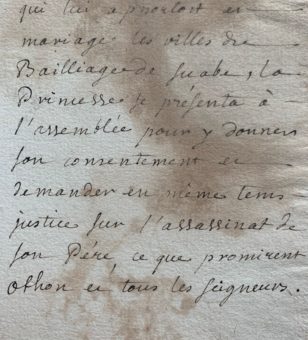 qui lui apportoit en
mariage les villes du
Bailliage de Suabe, la
Princesse se présenta à
l'assemblée pour y donner
son consentement et
demander en même tems
justice sur l'assassinat de
son Pére, ce que promirent
Othon et tous les seigneurs.